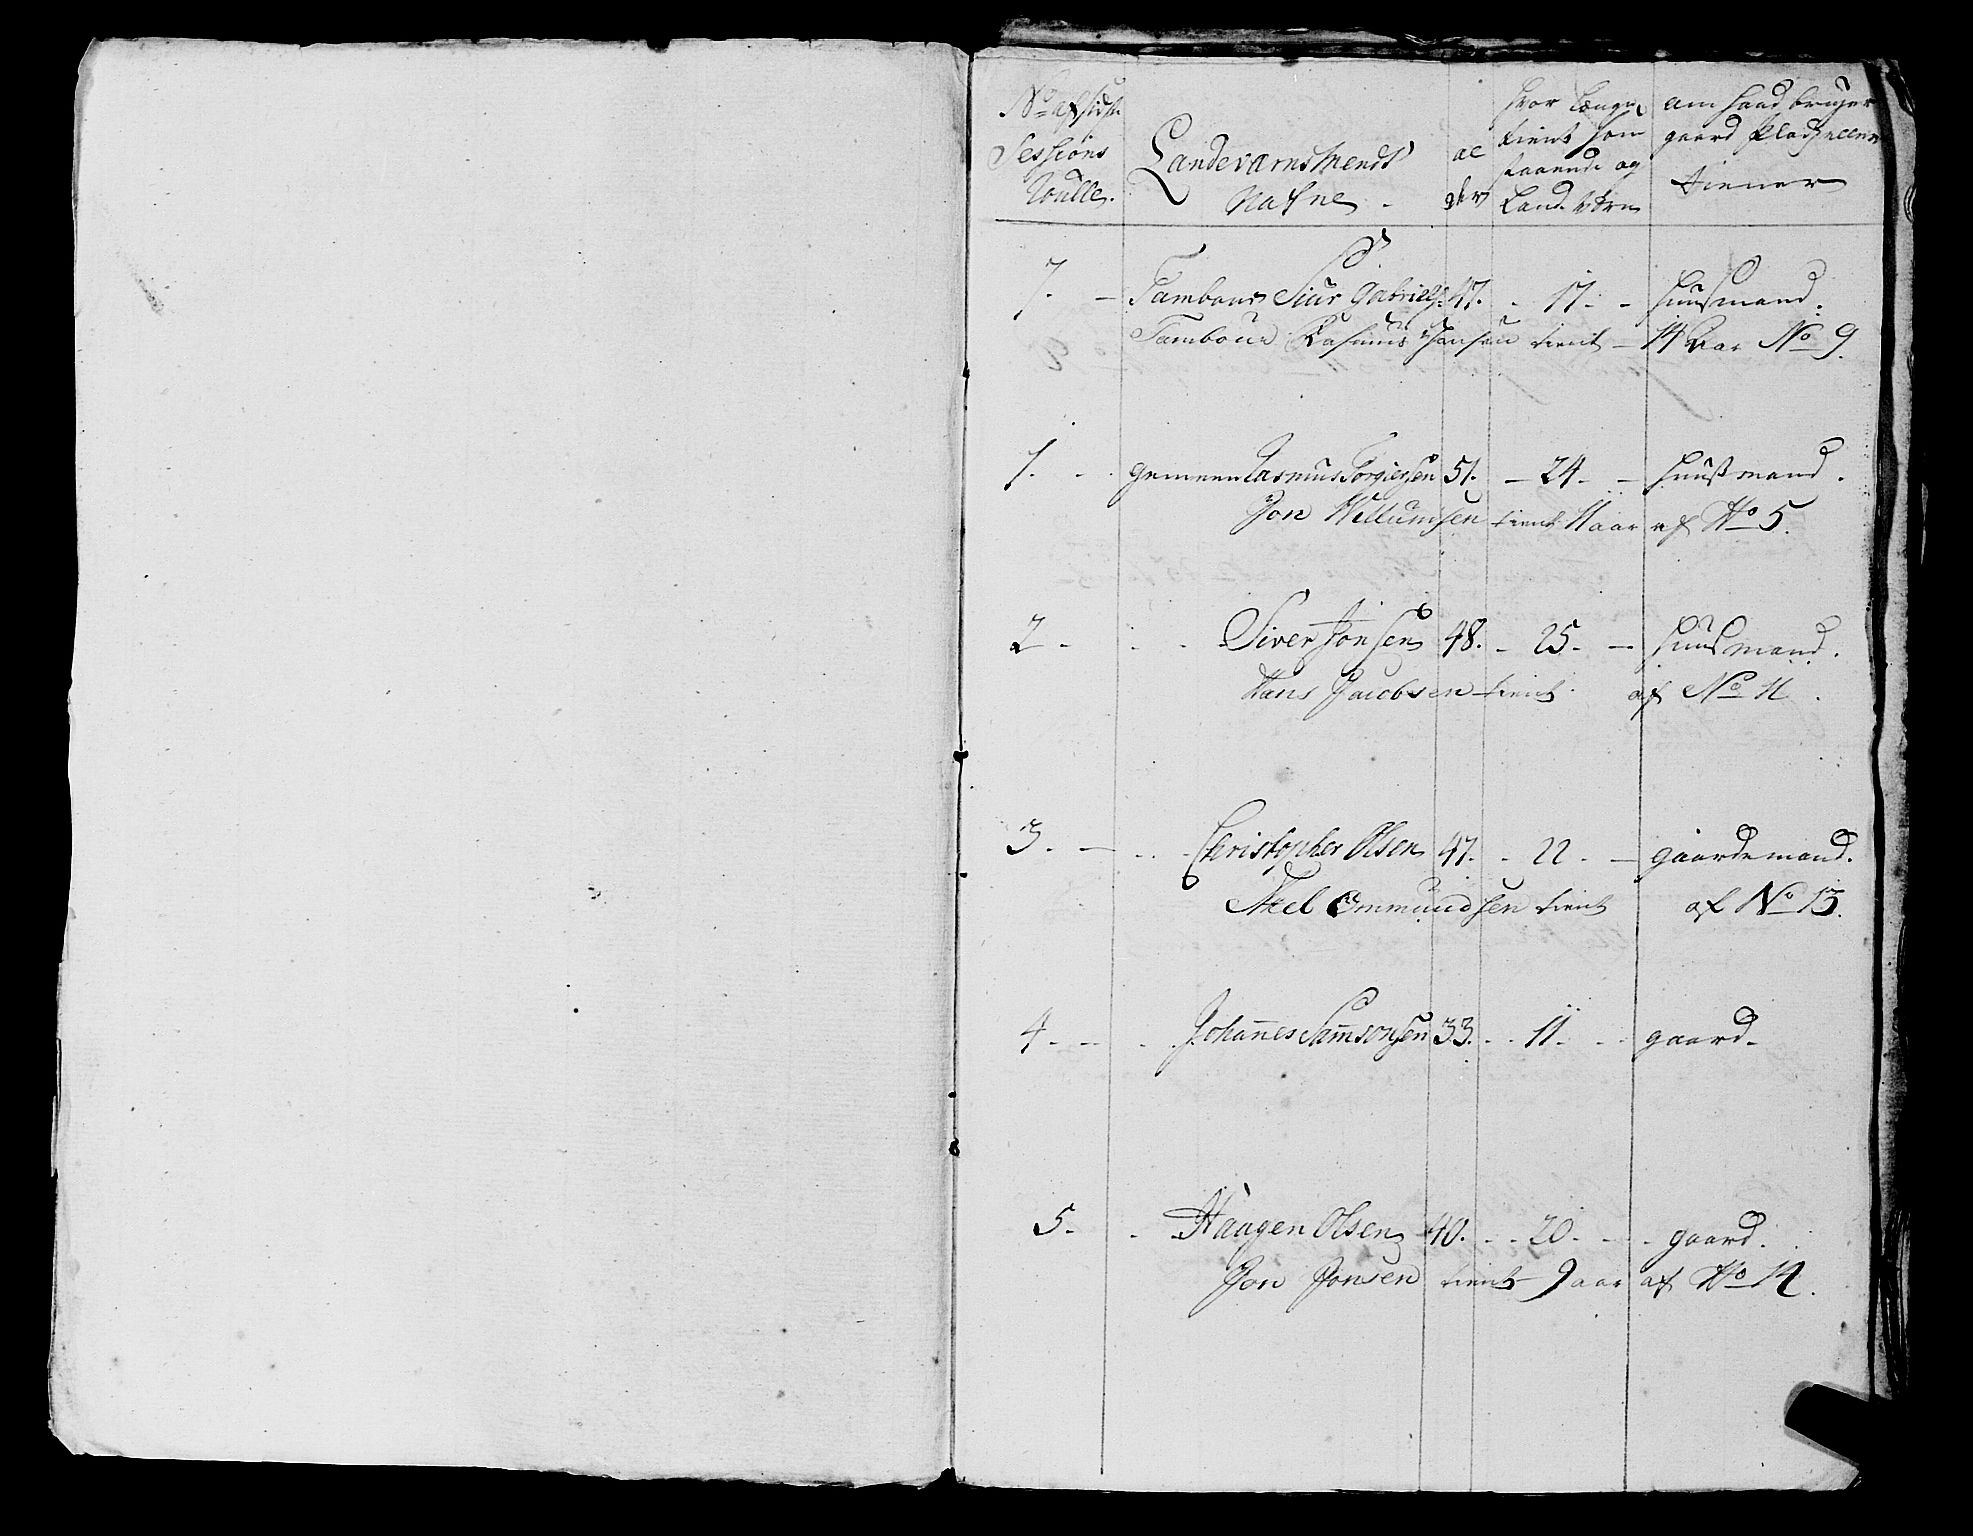 No af sidste
Sessions
Roulle.
Landeværns Mends
Nafne
al
der
hvor længe
tient som
staaende og
Land. Værn
om hand bruger
gaard Plads eller
tiener
7. Tambour Siur Gabriels. 47. 17. huusmand.
Tambour Rasmus Hansen tient 14 Aar No 9.
1. gemeen Rasmus Torgiersen 51. 24. huusmand.
Jon Willumsen tient 11 aar af No 5.
2 Siver Jonsen 48. 25. huusmand.
Hans Jacobsen tient af No 11.
3. Christopher Olsen 47. 22. gaardemand.
Axel Ommundsen tient af No 13.
4 Johannes Samsonsen 33. 11. gaard.
5. Haagen Olsen 40. 20. gaard.
Jon Jonsen tient 9 aar af No 14.